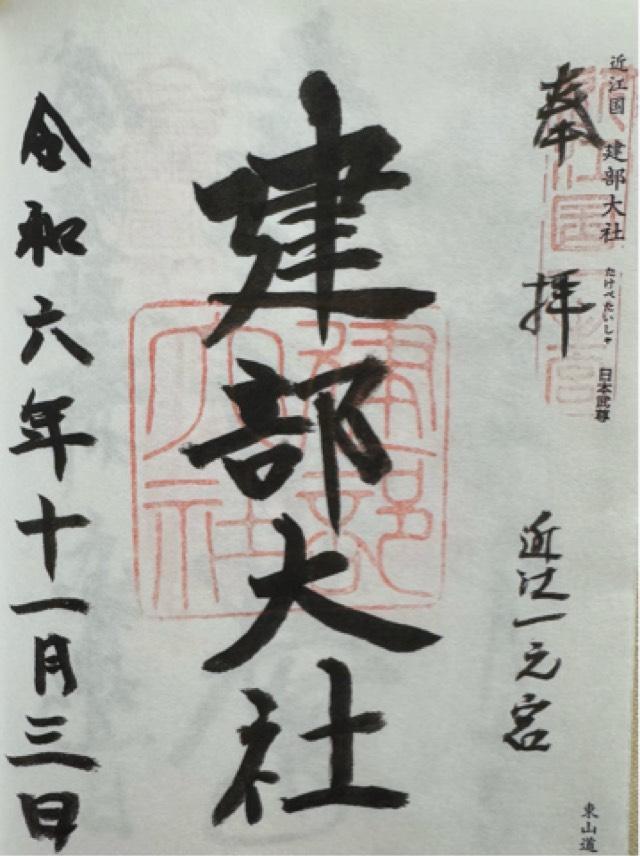 近江国 建部大社 たけべたいしゃ 日本武尊
東山道
奉拝
近江一元宮
建部大社
建部
大社
令和六年十一月三日